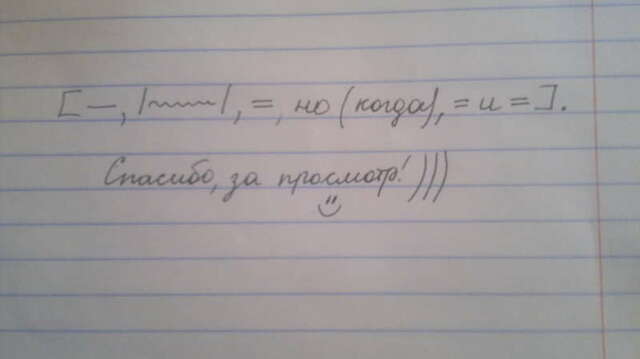 [—, |~~~~|, =, но (когда), = и =].
Спасибо, за просмотр!)))